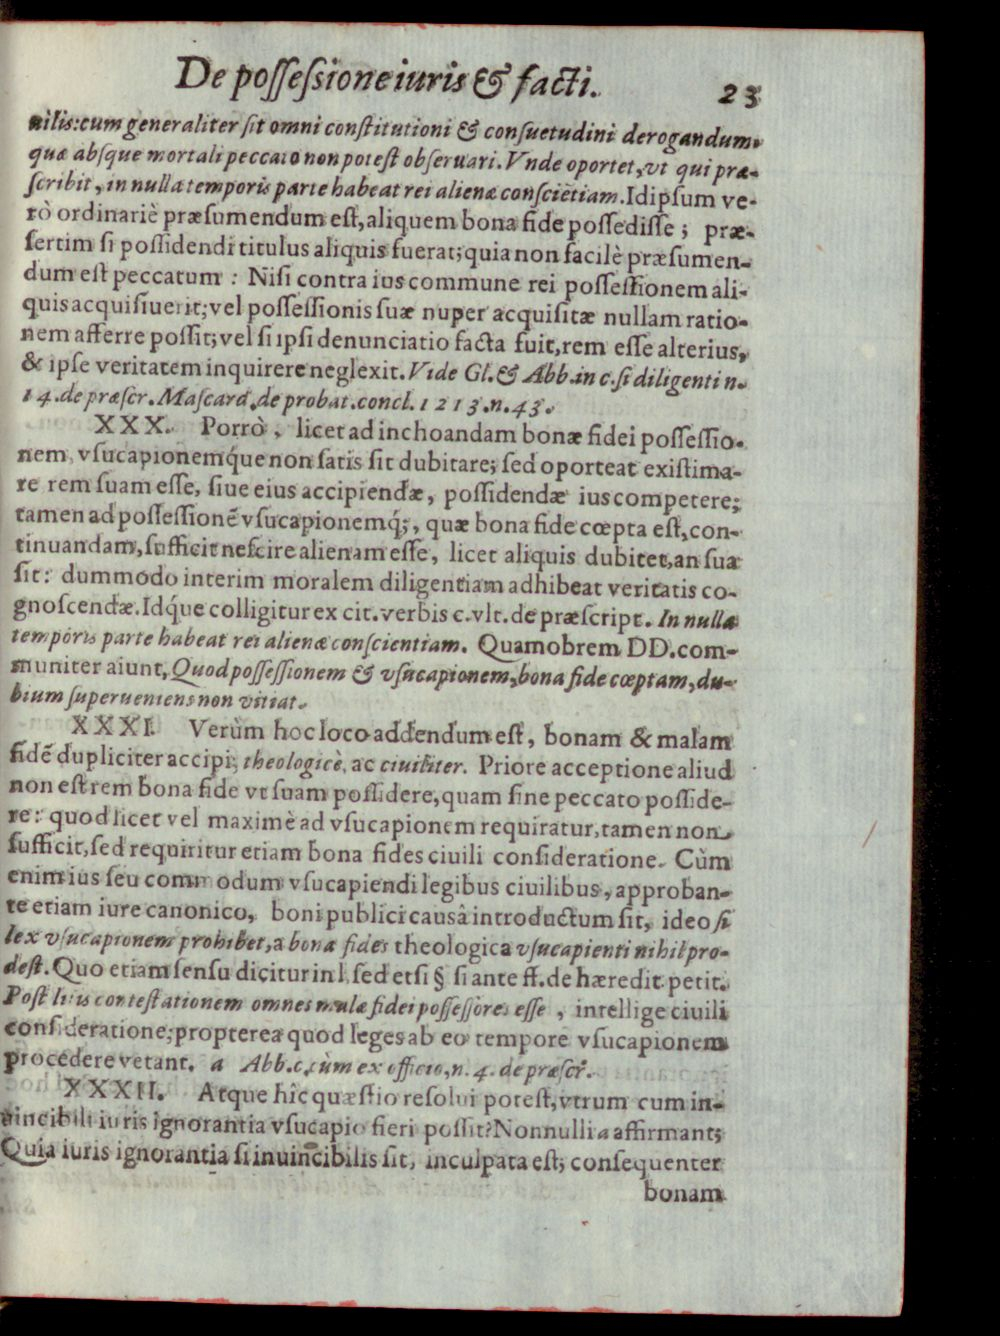 De possessione iuris & facti. 23
nilis: cum generaliter sit omni constitutioni & consuetudini derogandum,
quæ absque mortali peccato non potest obseruari. Vnde oportet, vt qui præ-
scribit, in nulla temporis parte habeat rei alienæ consciẽtiam. Id ipsum ve-
rò ordinariè præsumendum est, aliquem bona fide possedisse; præ-
sertim si possidendi titulus aliquis fuerat; quia non facilè præsumen-
dum est peccatum: Nisi contra ius commune rei possessionem ali-
quis acquisiuerit; vel possessionis suæ nuper acquisitæ nullam ratio-
nem afferre possit; vel si ipsi denunciatio facta fuit, rem esse alterius,
& ipse veritatem inquirere neglexit. Vide Gl. & Abb. in c. si diligenti n.
14. de præscr. Mascard. de probat. concl. 1213. n. 43.
XXX. Porrò, licet ad inchoandam bonæ fidei possessio-
nem, vsucapionemq́ue non satis sit dubitare; sed oporteat existima-
re rem suam esse, siue eius accipiendæ, possidendæ ius competere;
tamen ad possessionẽ vsucapionemq́;, quæ bona fide cœpta est, con-
tinuandam, sufficit nescire alienam esse, licet aliquis dubitet, an sua
sit: dummodo interim moralem diligentiam adhibeat veritatis co-
gnoscendæ. Idq́ue colligitur ex cit. verbis c. vlt. de præscript. In nulla
temporis parte habeat rei alienæ conscientiam. Quamobrem DD. com-
muniter aiunt, Quod possessionem & vsucapionem, bona fide cœptam, du-
bium superueniens non vitiat.
XXXI. Verùm hoc loco addendum est, bonam & malam
fidẽ dupliciter accipi; theologicè, ac ciuiliter. Priore acceptione aliud
non est rem bona fide vt suam possidere, quam sine peccato posside-
re: quod licet vel maximè ad vsucapionem requiratur, tamen non
sufficit, sed requiritur etiam bona fides ciuili consideratione. Cùm
enim ius seu commodum vsucapiendi legibus ciuilibus, approban-
te etiam iure canonico, boni publici causâ introductum sit, ideo si
lex vsucapionem prohibet, a bona fides theologica vsucapienti nihil pro-
dest. Quo etiam sensu dicitur in l. sed etsi § si ante ff. de hæredit. petit.
Post litis contestationem omnes malæ fidei possessores esse, intellige ciuili
consideratione; propterea quod leges ab eo tempore vsucapionem
procedere vetant. a Abb. c. cùm ex officio, n. 4. de præscr.
XXXII. Atque hîc quæstio resolui potest, vtrum cum in-
uincibili iuris ignorantia vsucapio fieri possit? Nonnulli a affirmant;
Quia iuris ignorantia si inuincibilis sit, inculpata est; consequenter
bonam